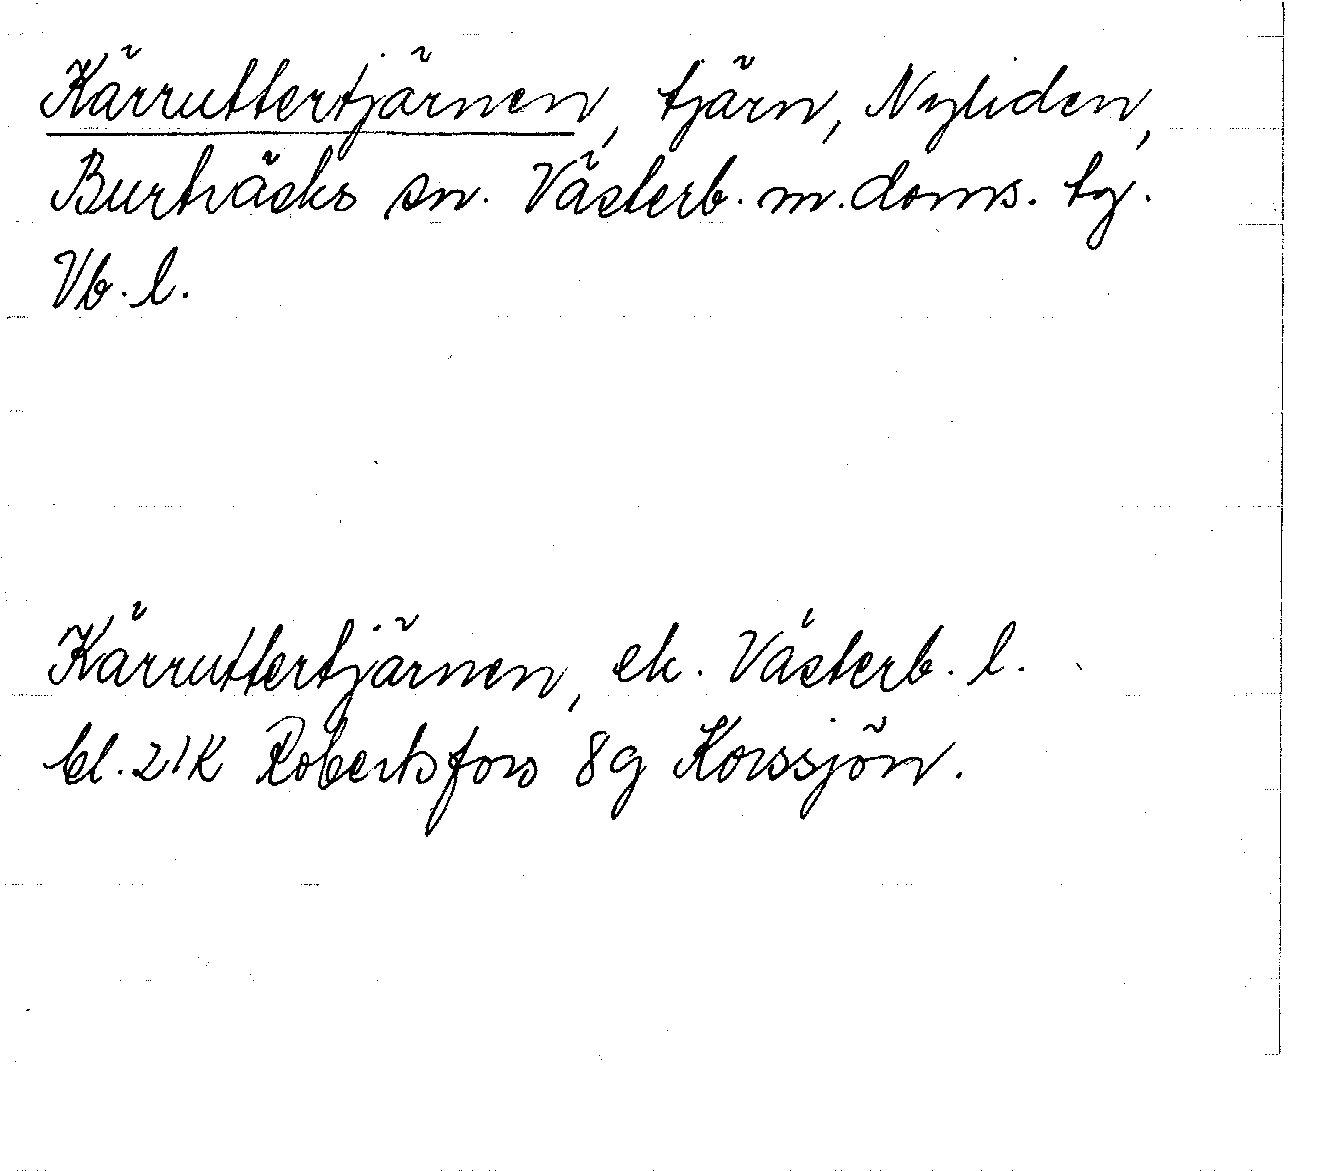 Kärruttertjärnen, tjärn, Nyliden,
Burträsks sn. Västerb. m. doms. tg.
Vb. l.
Kärruttertjärnen, ek. Västerb. l.
bl. 21K Robertsfors 8g Korssjön.